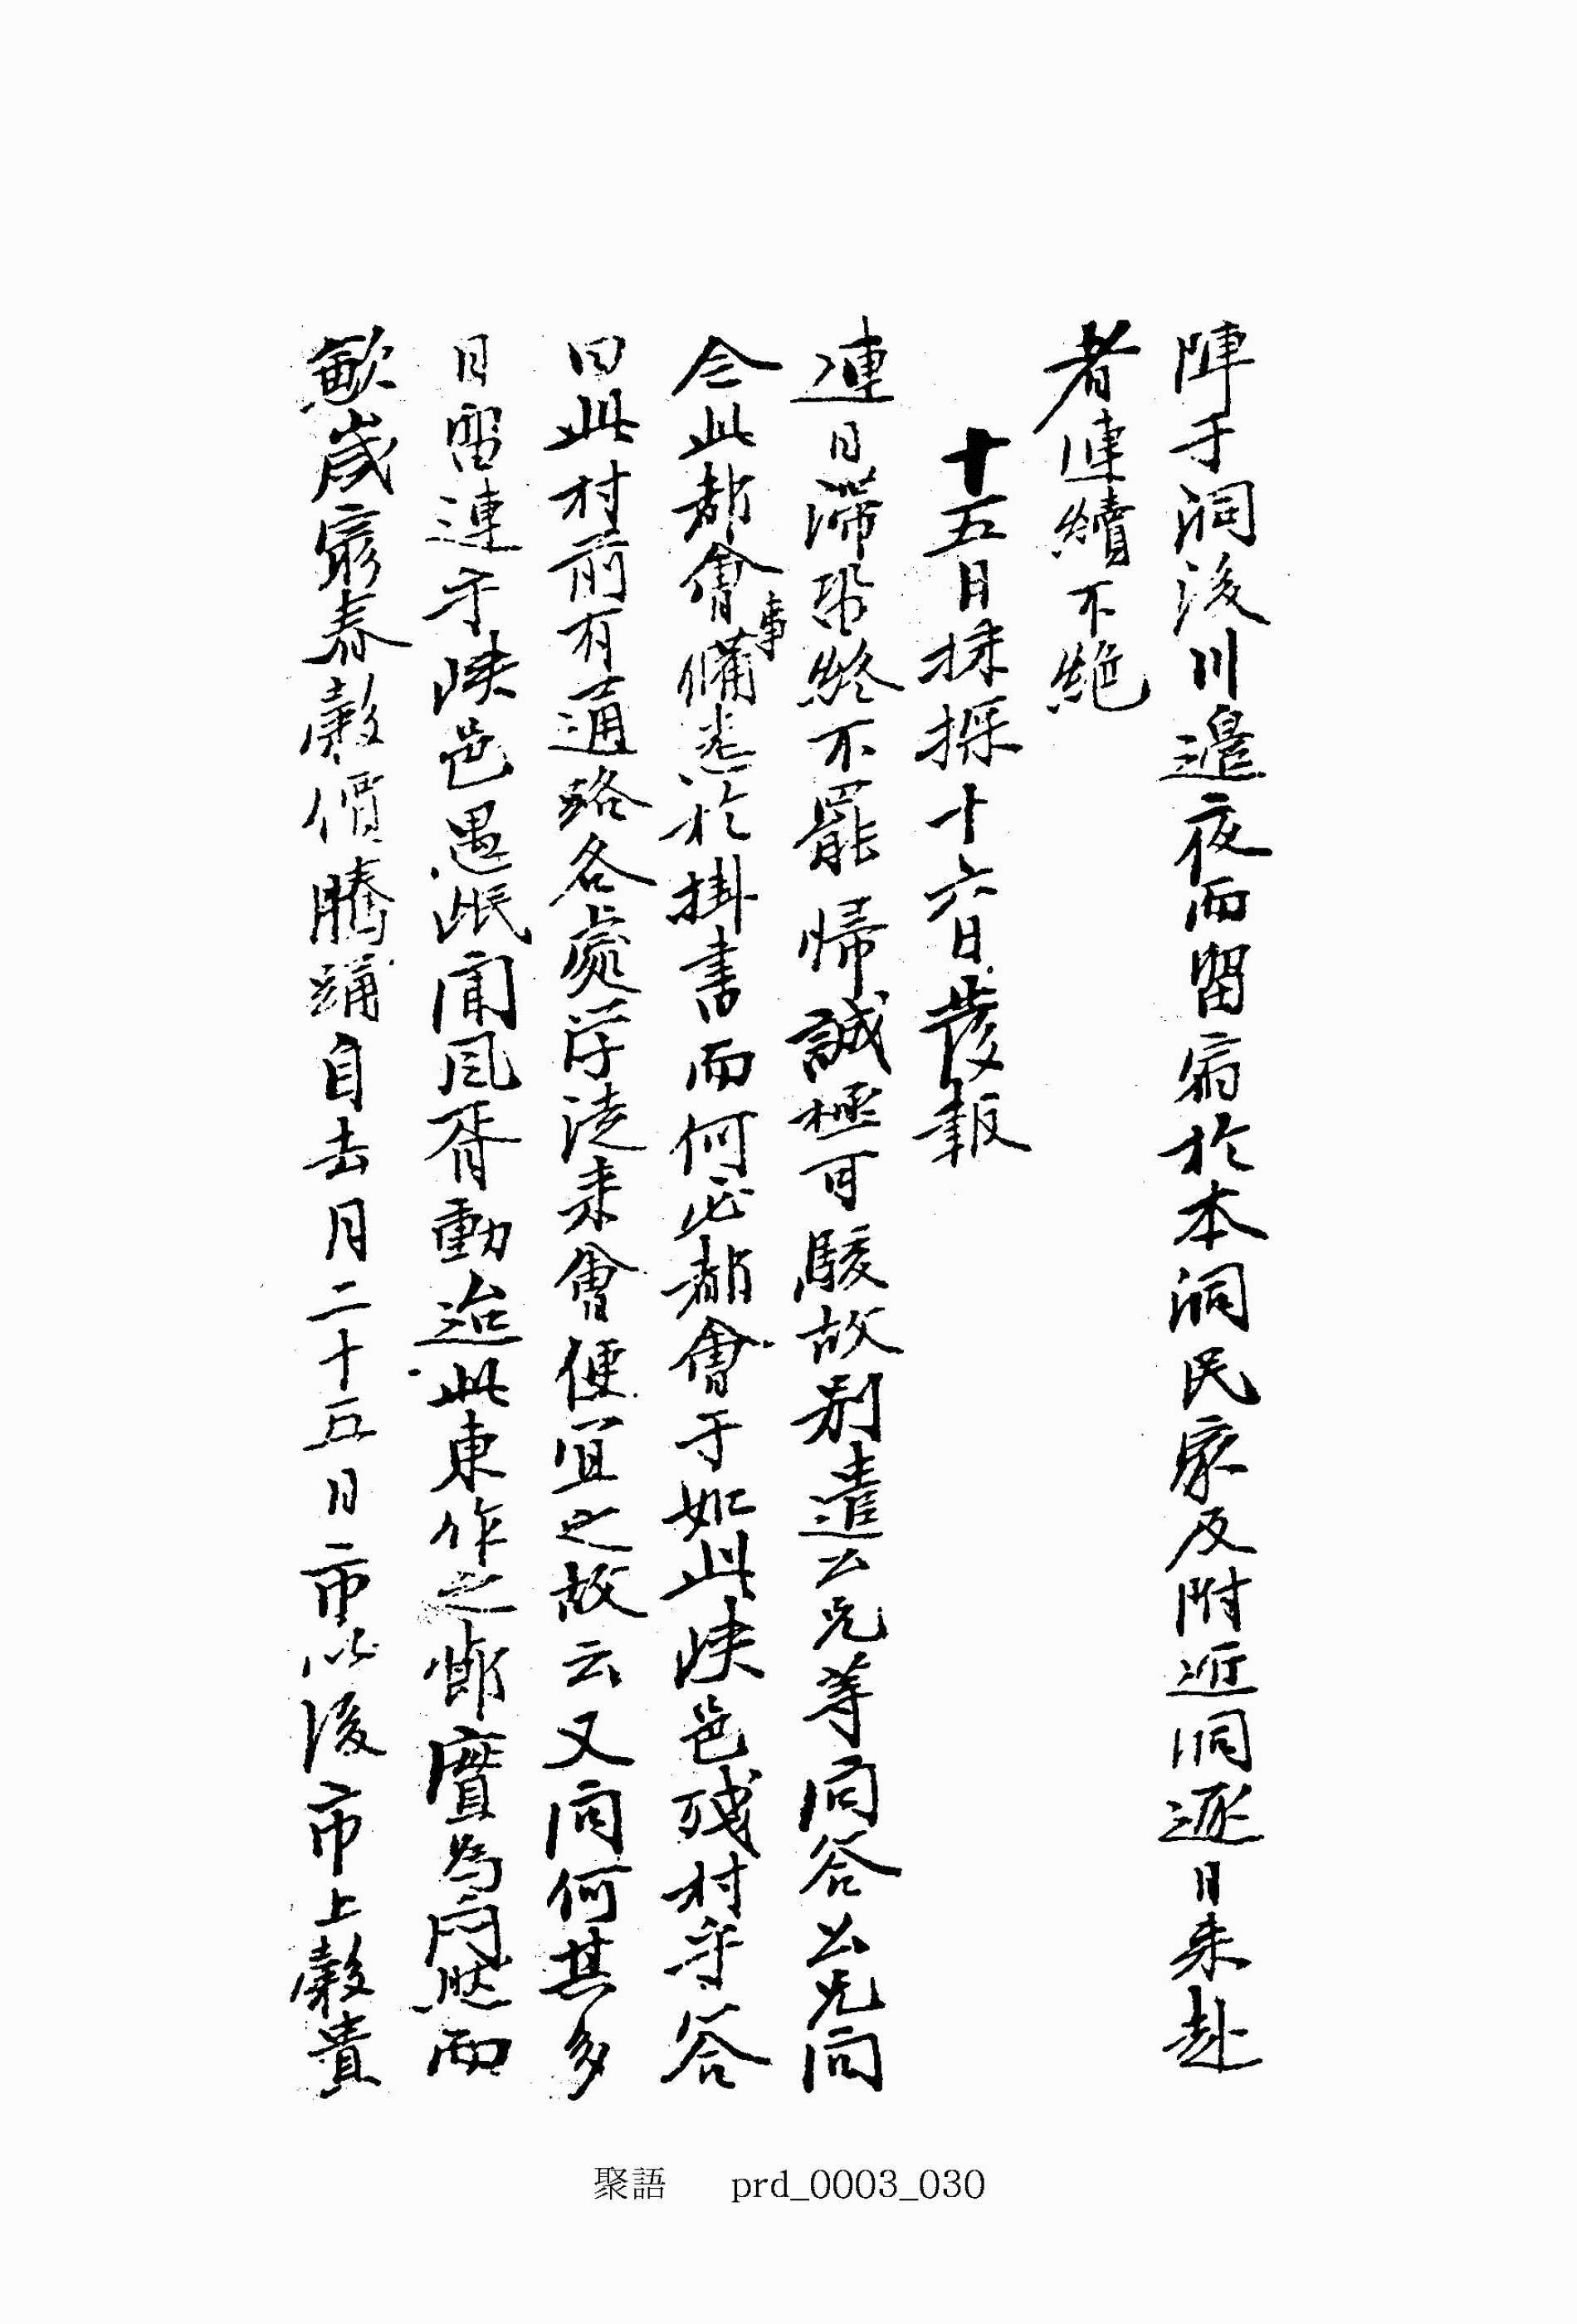 陣于洞後川邊夜而留宿於本洞民家及附近洞逐日來赴
者連續不絶
十五日採探十六日發報
連日滯留終不罷歸誠極可駭故別遣公兄等問答公兄問
今此都會事備悉於掛書而何必都會于如此峽邑殘村乎答
曰此村前有通路各處學徒來會便宜之故云又問何其多
日留連于峽邑愚氓聞風胥動迨此東作之節實爲悶然而
歉歲窮春穀價騰踊自去月二十五日市以後市上穀貴
聚語 prd_0003_030